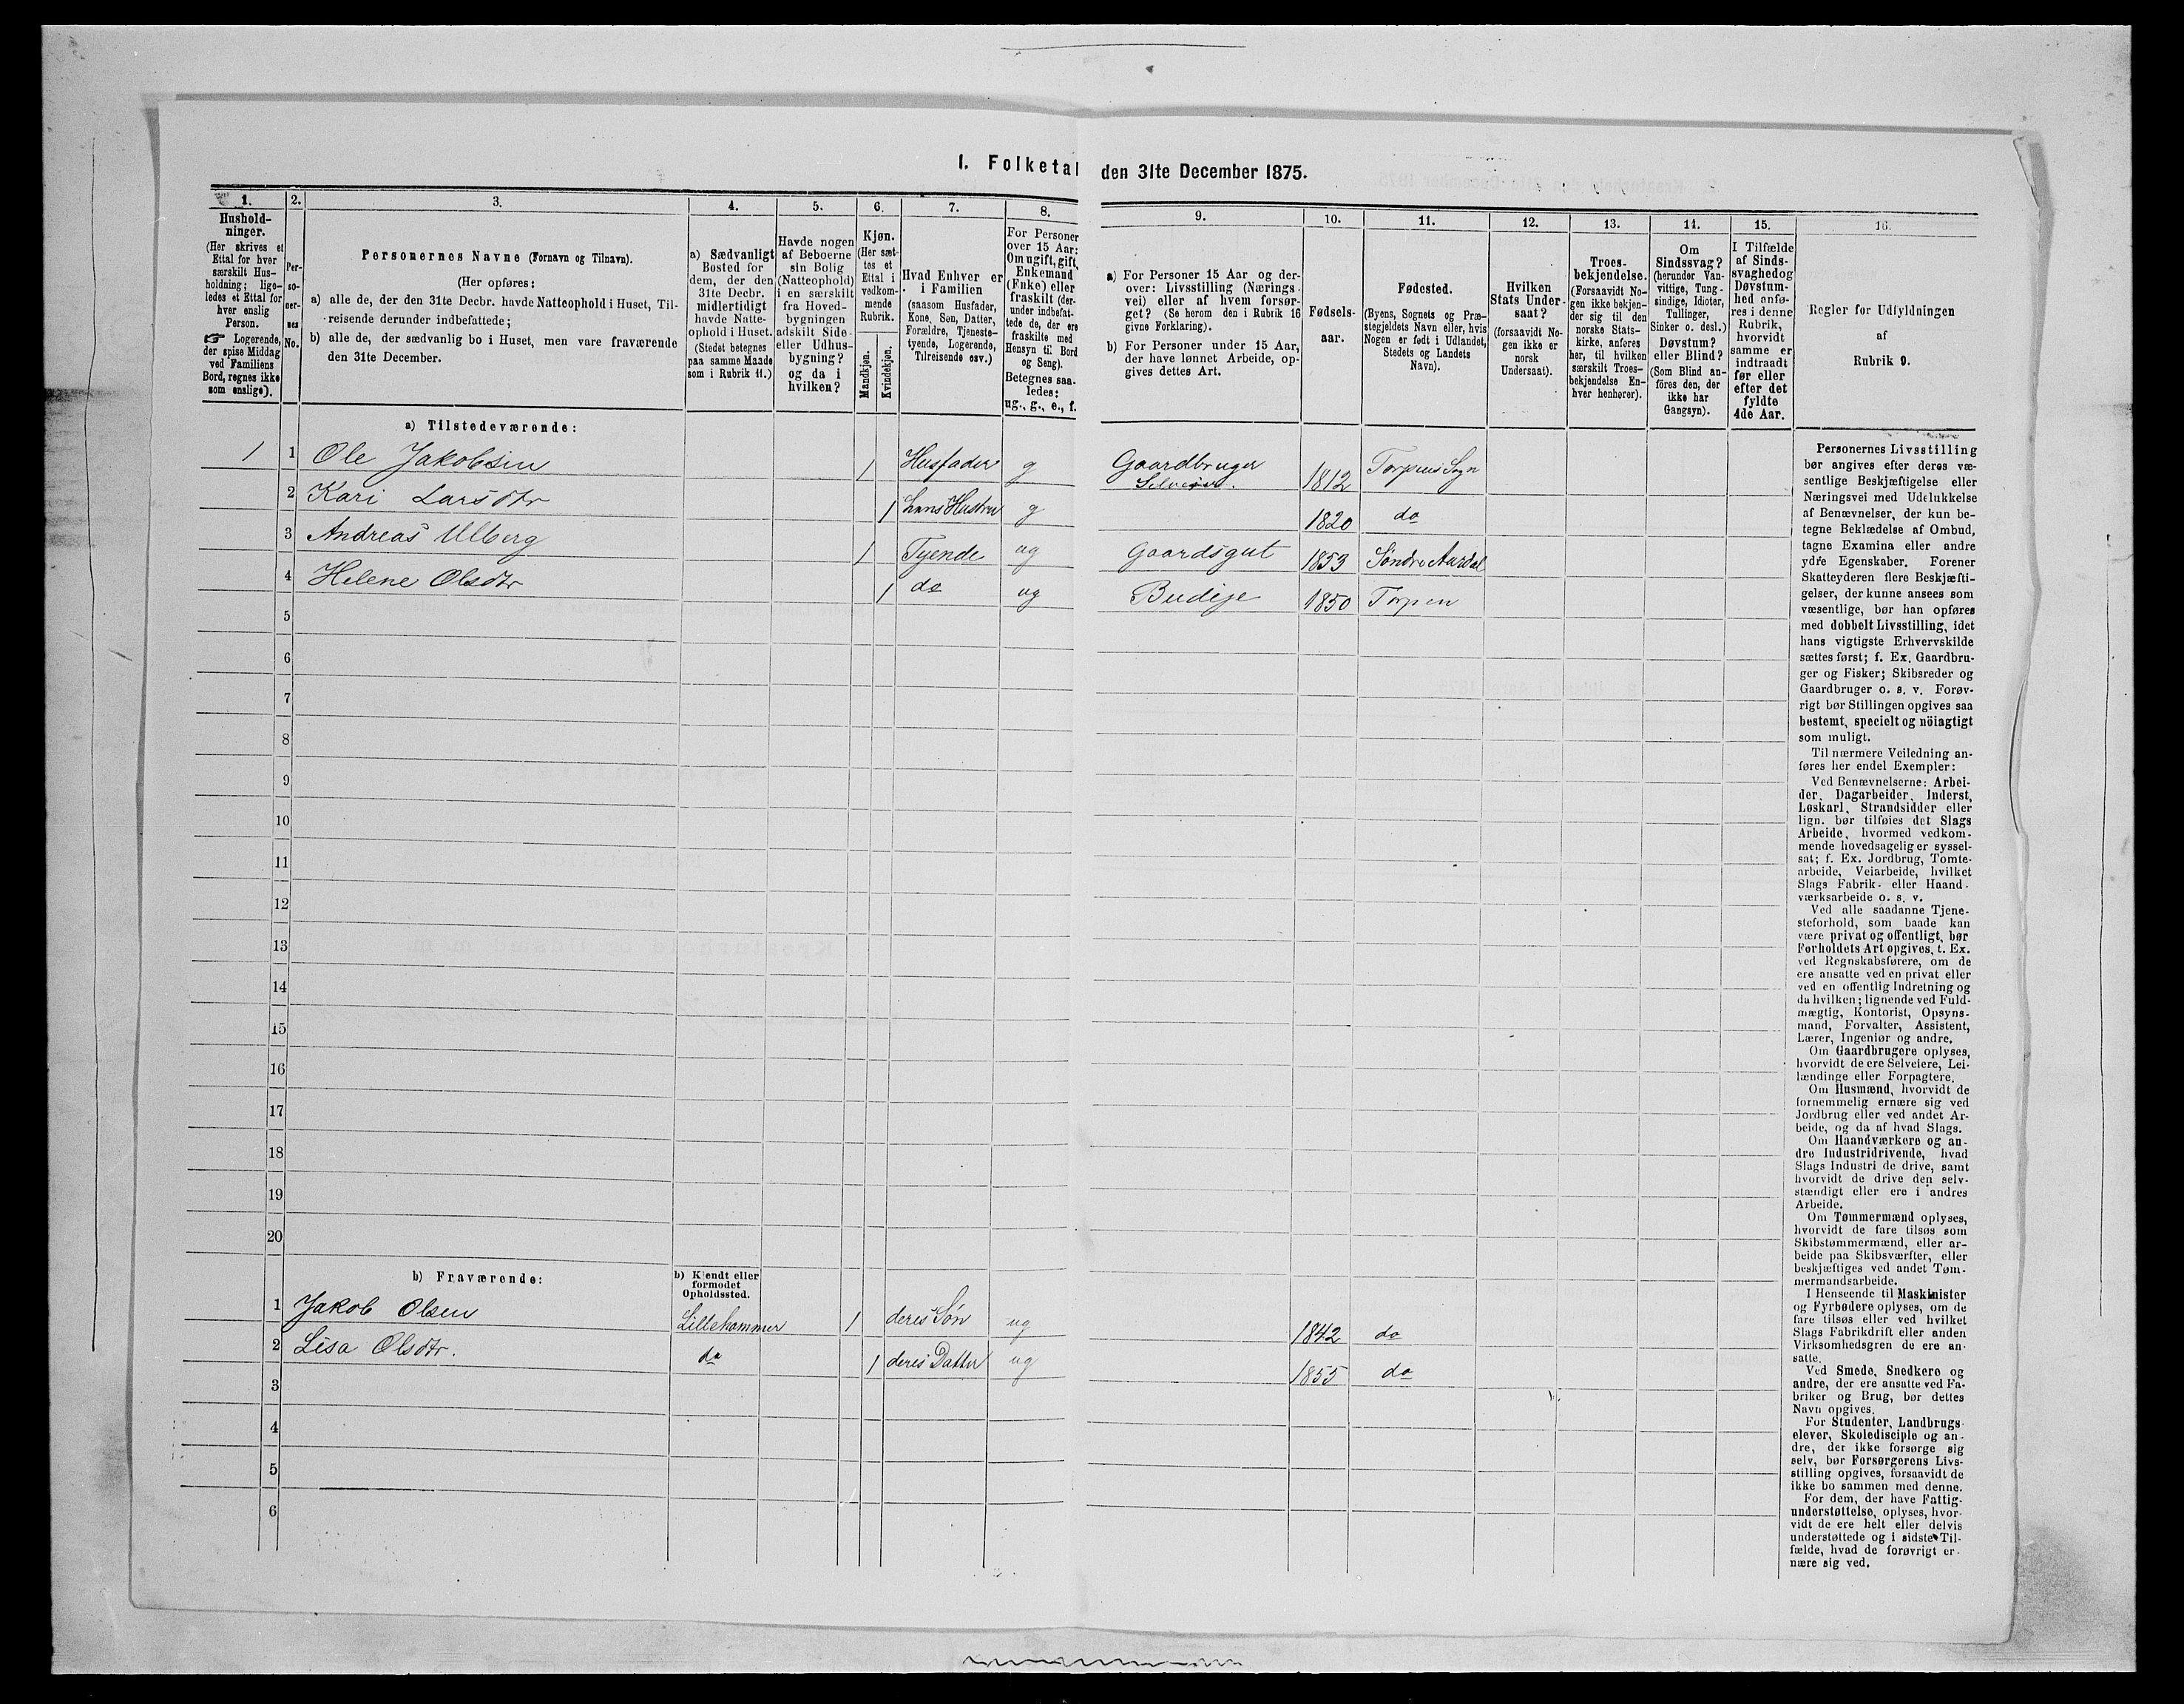 I. Folketal den 31te December 1875.
1.
Hushold-
ninger.
(Her skrives et
Ettal for hver
særskilt Hus-
holdning; lige-
ledes et Ettal for
hver enslig
Person.
☞ Logerende,
der spise Middag
ved Familiens
Bord, regnes ikke
som enslige).
2.
Per-
so-
ner-
nes
No.
3.
Personernes Navne (Fornavn og Tilnavn).
(Her opføres:
a) alle de, der den 31te Decbr. havde Natteophold i Huset, Til-
reisende derunder indbefattede;
b) alle de, der sædvanlig bo i Huset, men vare fraværende
den 31te December.
4.
a) Sædvanligt
Bosted for
dem, der den
31te Decbr.
midlertidigt
havde Natte-
ophold i Huset.
(Stedet betegnes
paa samme Maade
som i Rubrik 11.)
5.
Havde nogen
af Beboerne
sin Bolig
(Natteophold)
i en særskilt
fra Hoved-
bygningen
adskilt Side-
eller Udhus-
bygning?
og da i
hvilken?
6.
Kjøn.
(Her sæt-
tes et
Ettal i
vedkom-
mende
Rubrik.
Mandkjøn.
Kvindekjøn.
7.
Hvad Enhver er
i Familien
(saasom Husfader,
Kone, Søn, Datter,
Forældre, Tjeneste-
tyende, Logerende,
Tilreisende osv.)
8.
For Personer
over 15 Aar:
Om ugift, gift,
Enkemand
(Enke) eller
fraskilt (der-
under indbefat-
tede de, der ere
fraskilte med
Hensyn til Bord
og Seng).
Betegnes saa-
ledes:
ug., g., e., f.
9.
a) For Personer 15 Aar og der-
over: Livsstilling (Nærings-
vei) eller af hvem forsør-
get? (Se herom den i Rubrik 16
givne Forklaring).
b) For Personer under 15 Aar,
der have lønnet Arbeide, op-
gives dettes Art.
10.
Fødsels-
aar.
11.
Fødested.
(Byens, Sognets og Præ-
stegjeldets Navn eller, hvis
Nogen er født i Udlandet,
Stedets og Landets
Navn).
12.
Hvilken
Stats Under-
saat?
(forsaavidt No-
gen ikke er
norsk
Undersaat).
13.
Troes-
bekjendelse.
(Forsaavidt No-
gen ikke bekjen-
der sig til den
norske Stats-
kirke, anføres
her, til hvilken
særskilt Troes-
bekjendelse En-
hver henhører).
14.
Om
Sindssvag?
(herunder Van-
vittige, Tung-
sindige, Idioter,
Tullinger,
Sinker o. desl.)
Døvstum?
eller Blind?
(Som Blind an-
föres den, der
ikke har
Gangsyn).
15.
I Tilfælde
af Sinds-
svaghed og
Døvstum-
hed anfø-
res i denne
Rubrik,
hvorvidt
samme er
indtraadt
før eller
efter det
fyldte
4de Aar.
16.
Regler for Udfyldningen
af
Rubrik 9.
a) Tilstedeværende:
1 1 Ole Jakobsen 1 Husfader g Gaardbruger Selveier. 1812 Torpens Sogn
2 Kari Larsdtr 1 hans Hustru g 1820 do
3 Andreas Ulberg 1 Tyende ug Gaardsgut 1853 Søndre Aurdal
4 Helene Olsdtr 1 do ug Budeje 1850 Torpen
5
6
7
8
9
10
11
12
13
14
15
16
17
18
19
20
b) Fraværende:
b) Kjendt eller
formodet
Opholdssted.
1 Jakob Olsen Lillehammer 1 deres Søn ug 1842 do
2 Lisa Olsdtr. do 1 deres Datter ug 1855 do
3
4
5
6
Personernes Livsstilling
bør angives efter deres væ-
sentlige Beskjæftigelse eller
Næringsvei med Udelukkelse
af Benævnelser, der kun be-
tegne Beklædelse af Ombud,
tagne Examina eller andre
ydre Egenskaber. Forener
Skatteyderen flere Beskjæfti-
gelser, der kunne ansees som
væsentlige, bør han opføres
med dobbelt Livsstilling, idet
hans vigtigste Erhvervskilde
sættes først; f. Ex. Gaardbru-
ger og Fisker; Skibsreder og
Gaardbruger o. s. v. Forøv-
rigt bør Stillingen opgives saa
bestemt, specielt og nöiagtigt
som muligt.
Til nærmere Veiledning an-
føres her endel Exempler:
Ved Benævnelserne: Arbei-
der, Dagarbeider, Inderst,
Løskarl, Strandsidder eller
lign. bør tilføies det Slags
Arbeide, hvormed vedkom-
mende hovedsagelig er syssel-
sat; f. Ex. Jordbrug, Tomte-
arbeide, Veiarbeide, hvilket
Slags Fabrik- eller Haand-
værksarbeide o. s. v.
Ved alle saadanne Tjene-
steforhold, som baade kan
være privat og offentligt, bør
Forholdets Art opgives, t. Ex.
ved Regnskabsførere, om de
ere ansatte ved en privat eller
ved en offentlig Indretning og
da hvilken; lignende ved Fuld-
mægtig, Kontorist, Opsyns-
mand, Forvalter, Assistent,
Lærer, Ingeniør og andre.
Om Gaardbrugere oplyses,
hvorvidt de ere Selveiere, Lei-
lændinge eller Forpagtere.
Om Husmænd, hvorvidt de
fornemmelig ernære sig ved
Jordbrug eller ved andet Ar-
beide, og da af hvad Slags.
Om Haandværkere og an-
dre Industridrivende, hvad
Slags Industri de drive, samt
hvorvidt de drive den selv-
stændigt eller ere i andres
Arbeide.
Om Tømmermænd oplyses,
hvorvidt de fare tilsøs som
Skibstømmermænd, eller ar-
beide paa Skibsværfter, eller
beskjæftiges ved andet Tøm-
mermandsarbeide.
I Henseende til Maskinister
og Fyrbødere oplyses, om de
fare tilsøs eller ved hvilket
Slags Fabrikdrift eller anden
Virksomhedsgren de ere an-
satte.
Ved Smede, Snedkere og
andre, der ere ansatte ved Fa-
briker og Brug, bør dettes
Navn opgives.
For Studenter, Landbrugs-
elever, Skoledisciple og an-
dre, der ikke forsørge sig
selv, bør Forsørgerens Livs-
stilling opgives, forsaavidt de
ikke bo sammen med denne.
For dem, der have Fattig-
understøttelse, oplyses, hvor-
vidt de ere helt eller delvis
understøttede og i sidste Til-
fælde, hvad de forøvrigt er-
nære sig ved.